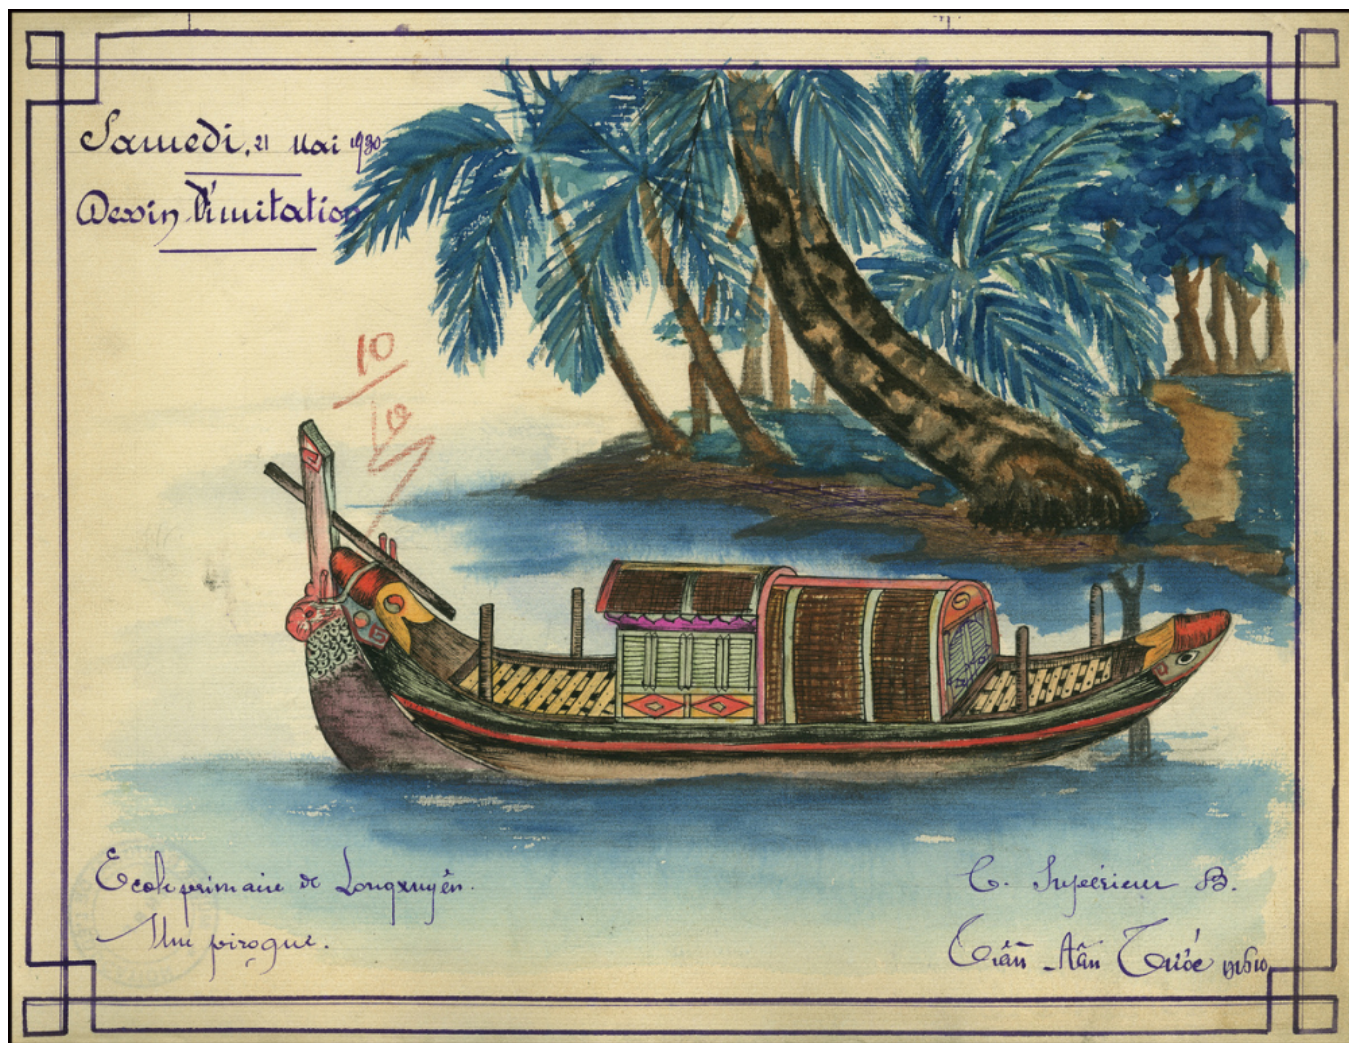 Samedi, 21 Mai 1930
Dessin d'imitation
10
10
Ecole primaire de Longxuyên.
Une pirogue.
C. Supérieur B.
Trần Tấn Trước